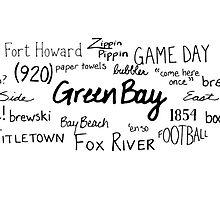 Fort Howard Zippin Pippin GAME DAY
(920) paper towels bubbler "come here once"
Side Green Bay East
brewski Bay Beach 'en so 1854
TITLETOWN FOX RIVER FOOTBALL